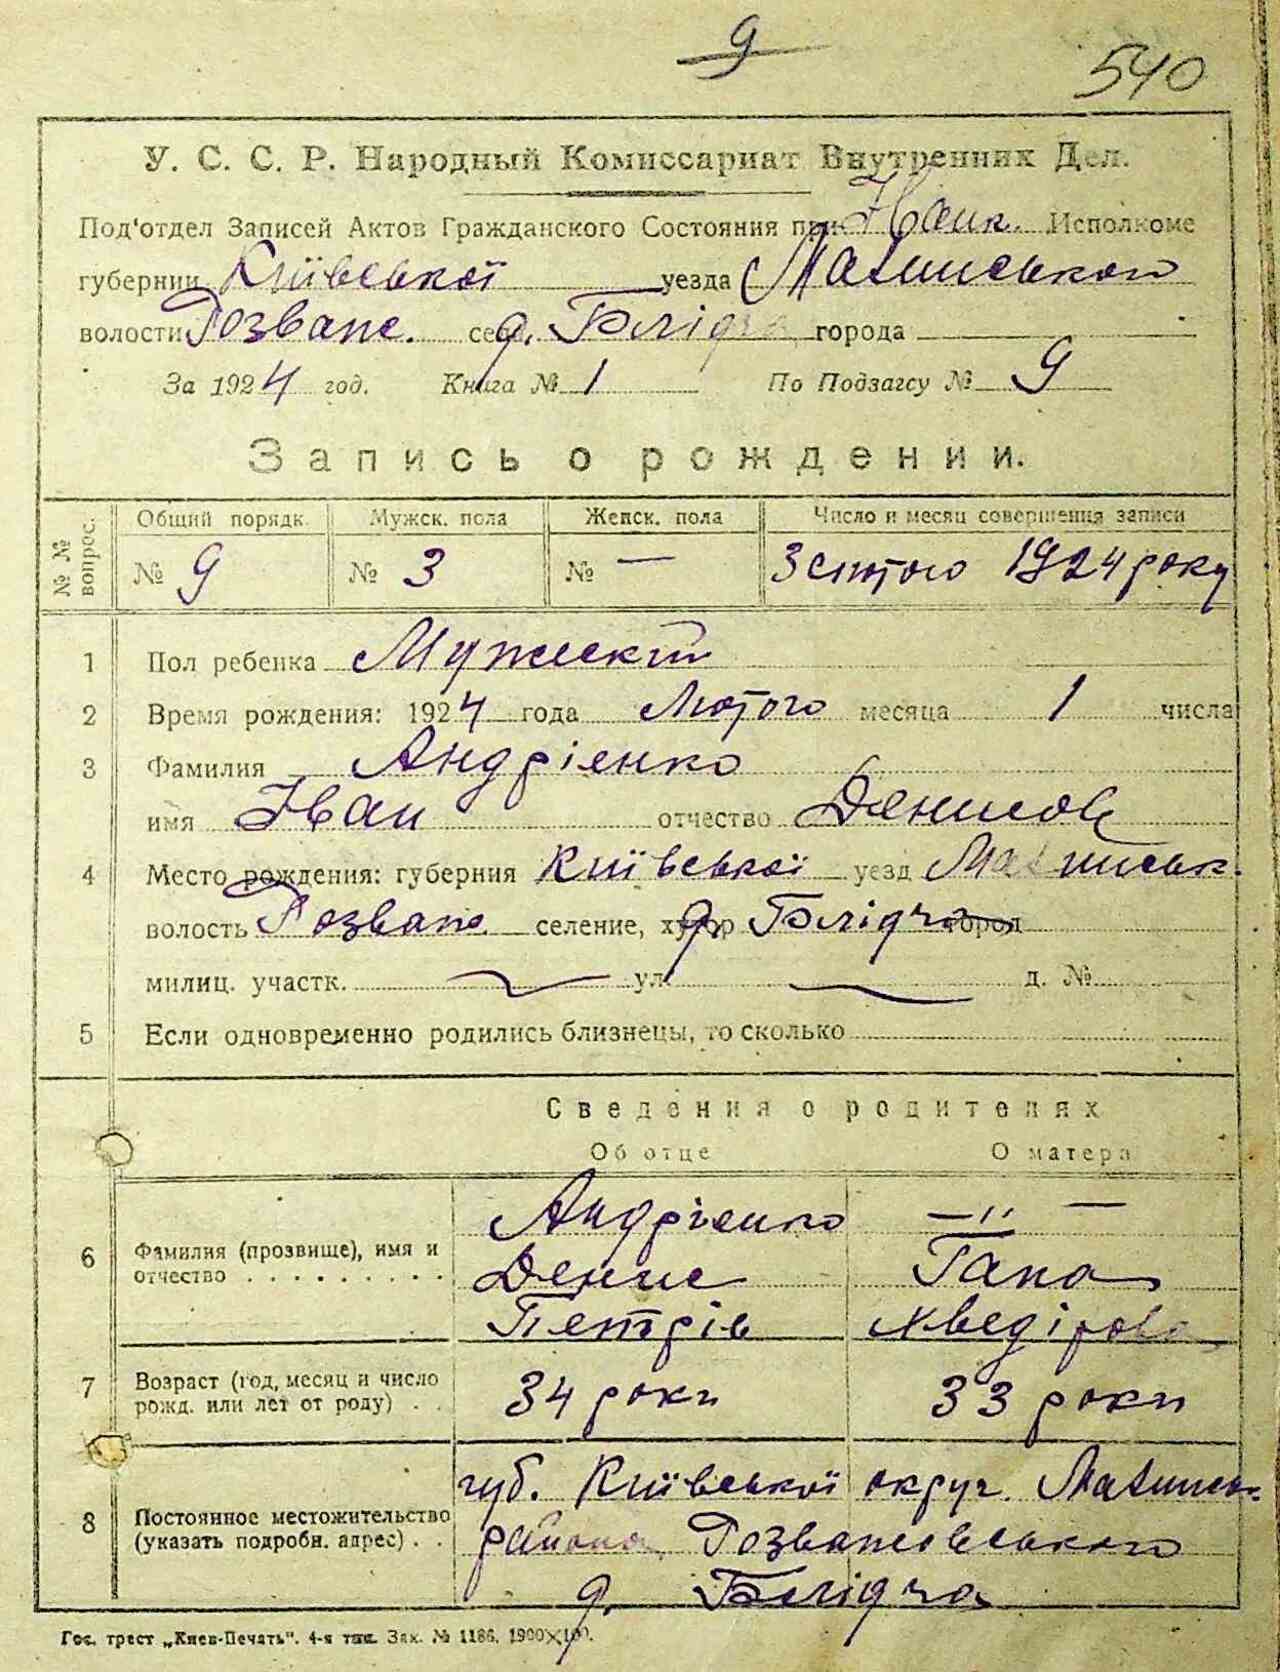 9
540
У. С. С. Р. Народный Комиссариат Внутренних Дел.
Под'отдел Записей Актов Гражданского Состояния при Исполкоме
губернии Київської уезда Малинського
волости Розваж. села д. Блідча города
За 1924 год. Книга № 1 По Подзагсу № 9
Запись о рождении.
№ № вопрос. Общий порядк. Мужск. пола Женск. пола Число и месяц совершения записи
№ 9 № 3 № — 3 лютого 1924 року
1 Пол ребенка Мужеский
2 Время рождения: 1924 года Лютого месяца 1 числа
3 Фамилия Андрієнко
имя Іван отчество Денисов
4 Место рождения: губерния Київської уезд Малинськ.
волость Розваж. селение, хутор д. Блідча город
милиц. участк. ул. д. №
5 Если одновременно родились близнецы, то сколько
Сведения о родителях
Об отце О матери
6 Фамилия (прозвище), имя и отчество . . . . . . . . . .
Андрієнко — " —
Денис Гапа
Петрів Хведірова
7 Возраст (год, месяц и число рожд. или лет от роду) . .
34 роки 33 роки
8 Постоянное местожительство (указать подробн. адрес) . .
губ. Київської округ. Малинськ.
района Розважевського
д. Блідча
Гос. трест „Киев-Печать". 4-я тип. Зак. № 1186. 1900×100.